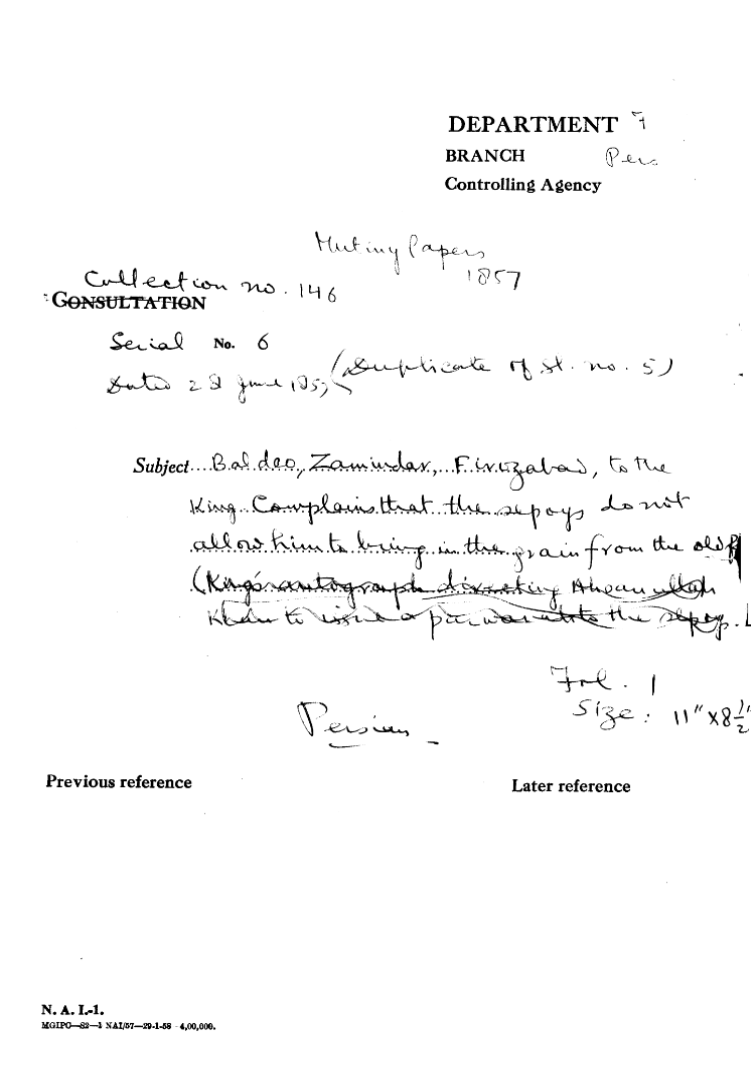 DEPARTMENT
BRANCH Pers
Controlling Agency
Mutiny Papers
1857
Collection no. 146
CONSULTATION
Serial No. 6
Dated 28 June 1857 (Duplicate of Sl. no. 5)
Subject Baldeo, Zamindar, Firuzabad, to the
King. Complains that the sepoys do not
allow him to bring in the grain from the old
(King's autograph directing Ahsanullah
Khan to issue a parwana to the sepoys.
Fol. 1
Size: 11" x 8 1/2"
Persian
Previous reference
Later reference
N. A. I.-1.
MGIPC—S2—1 NAI/57—29-1-58—4,00,000.